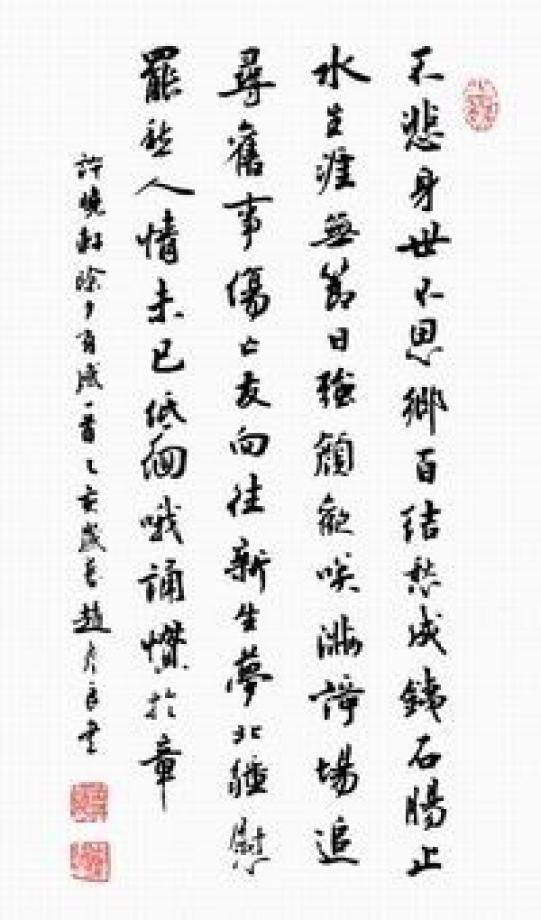 不悲身世不思鄉百結愁成鐵石腸止
水生涯無節日強顏歡咲滿場追
尋舊事傷亡友向往新生夢北疆慰
罷愁人情未已低佪哦誦慘於章
許曉軒除夕有感一首乙亥歲趙書